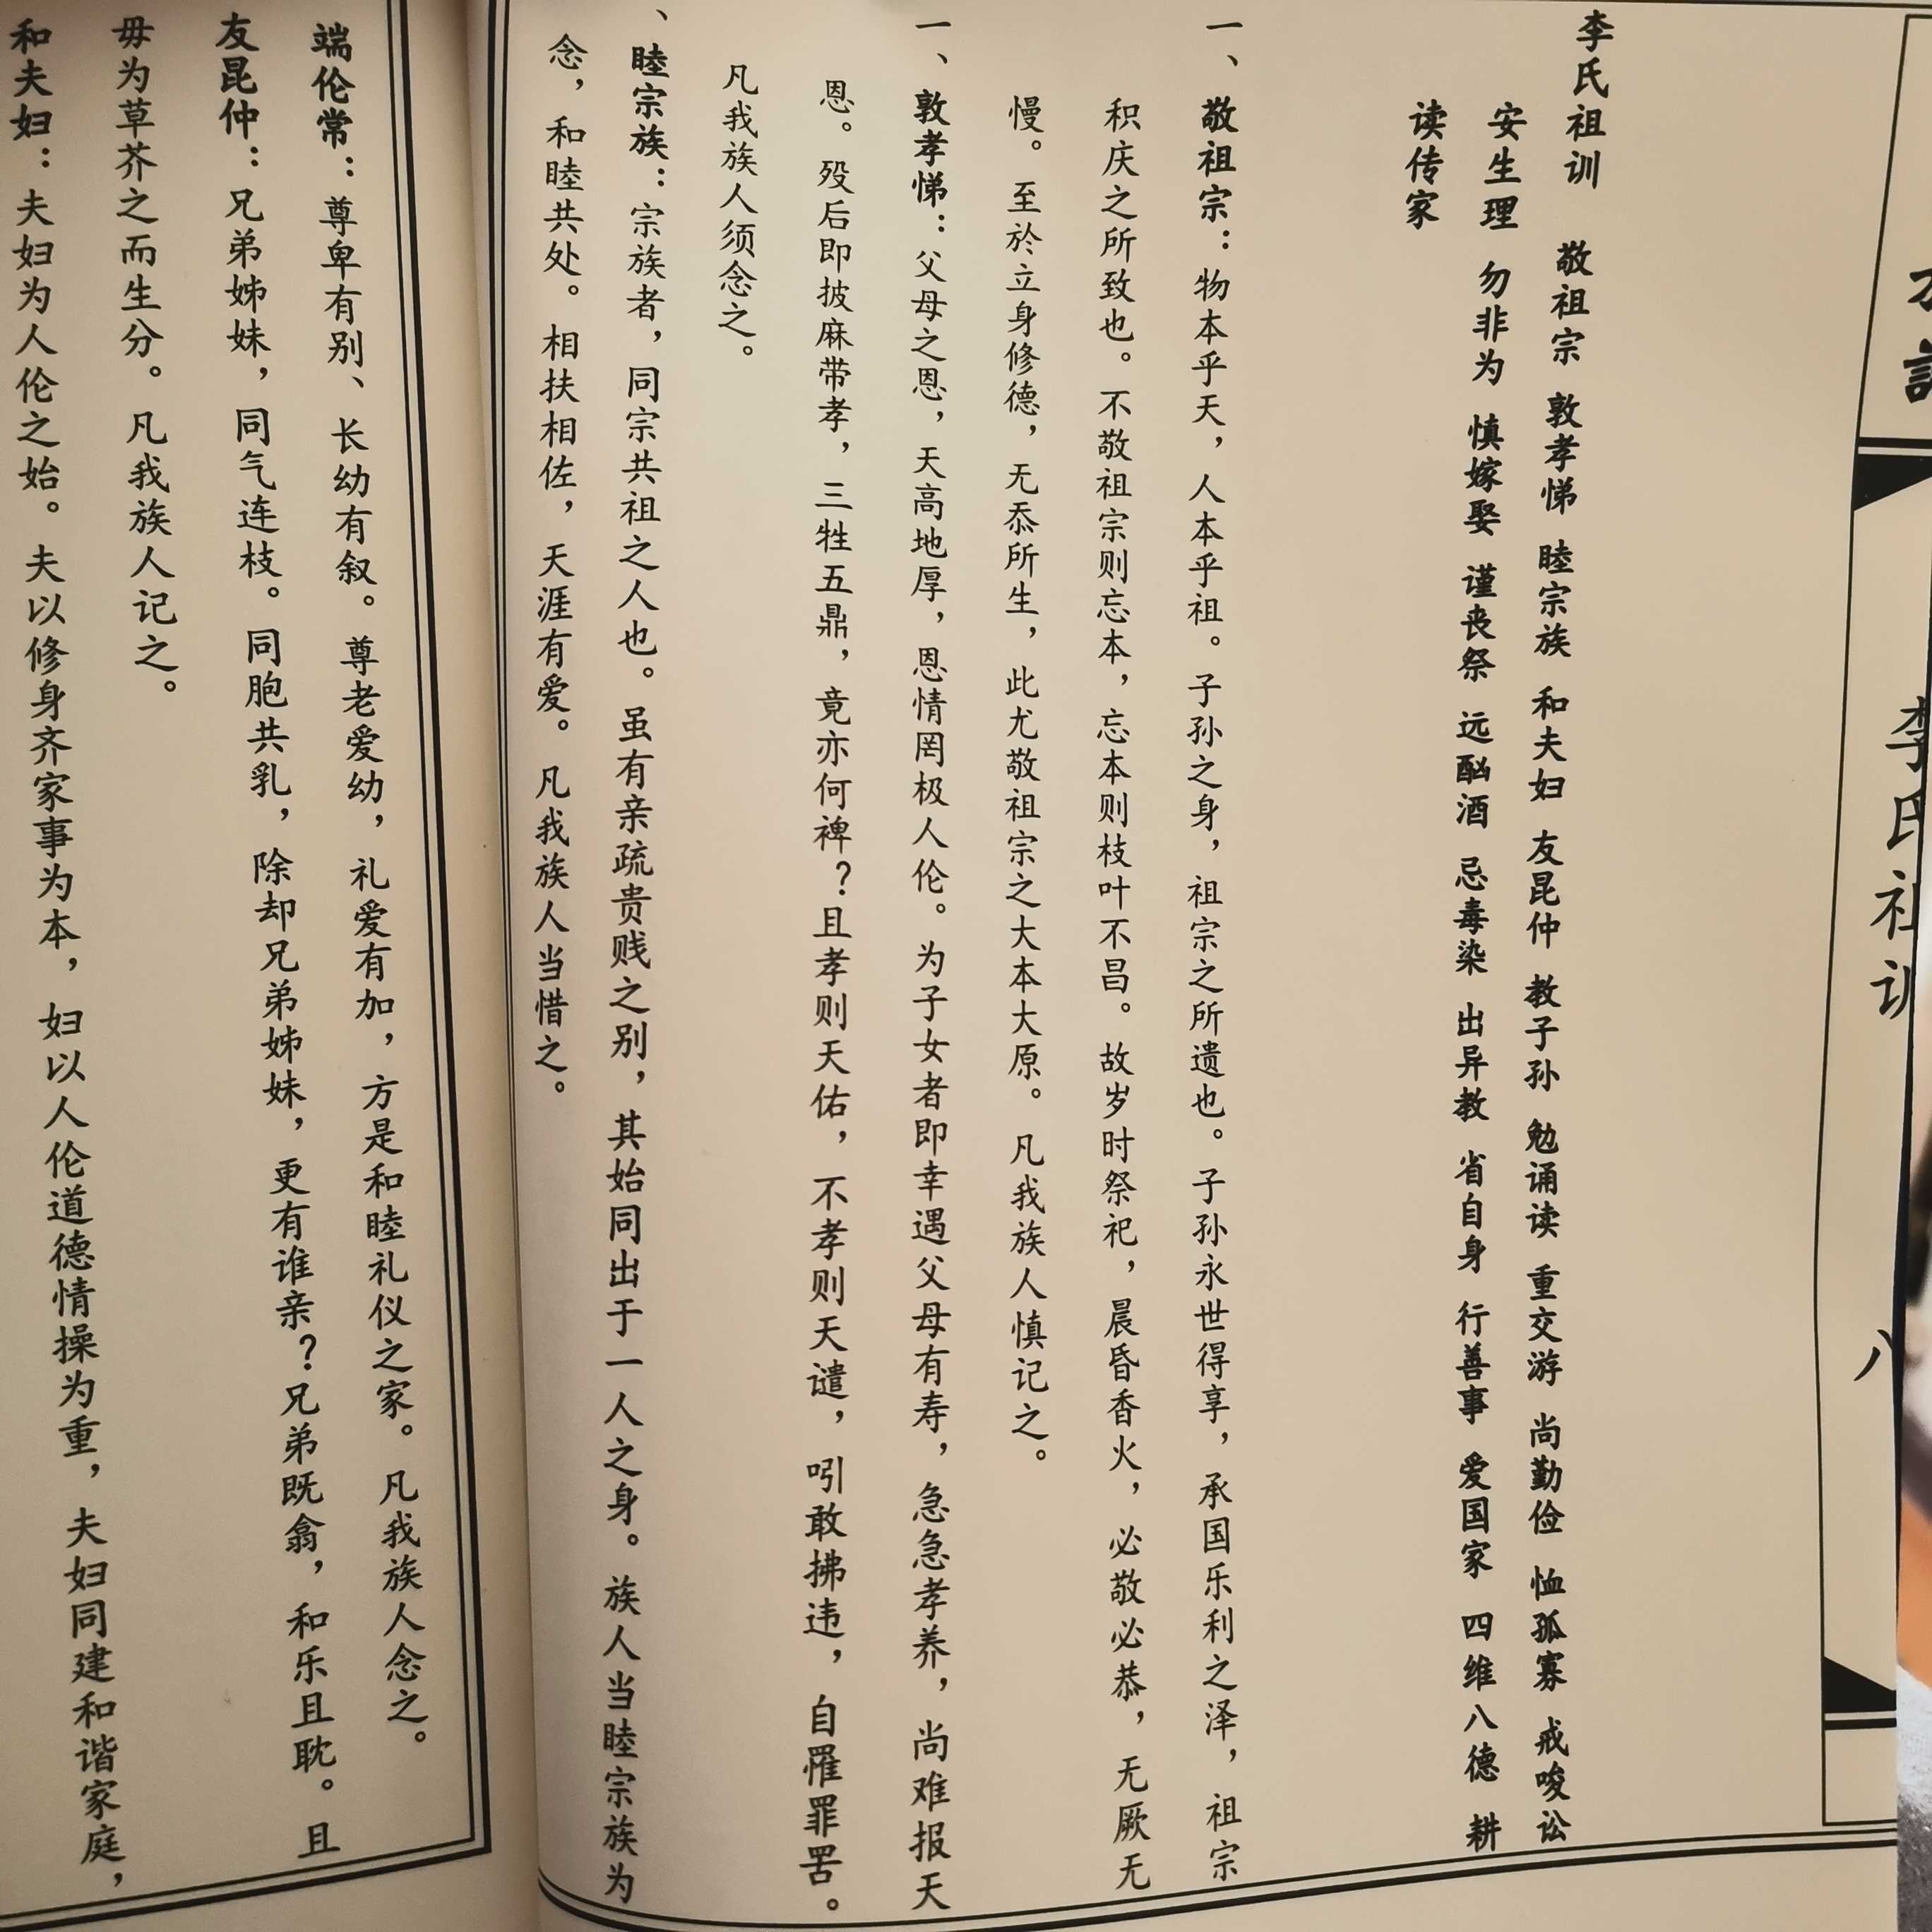 李氏祖训
李氏祖训 敬祖宗 敦孝悌 睦宗族 和夫妇 友昆仲 教子孙 勉诵读 重交游 尚勤俭 恤孤寡 戒唆讼
安生理 勿非为 慎嫁娶 谨丧祭 远酗酒 忌毒染 出异教 省自身 行善事 爱国家 四维八德 耕
读传家
一、敬祖宗：物本乎天，人本乎祖。子孙之身，祖宗之所遗也。子孙永世得享，承国乐利之泽，祖宗
积庆之所致也。不敬祖宗则忘本，忘本则枝叶不昌。故岁时祭祀，晨昏香火，必敬必恭，无厥无
慢。至於立身修德，无忝所生，此尤敬祖宗之大本大原。凡我族人慎记之。
一、敦孝悌：父母之恩，天高地厚，恩情罔极人伦。为子女者即幸遇父母有寿，急急孝养，尚难报天
恩。殁后即披麻带孝，三牲五鼎，竟亦何裨？且孝则天佑，不孝则天谴，吲敢拂违，自罹罪罟。
凡我族人须念之。
、睦宗族：宗族者，同宗共祖之人也。虽有亲疏贵贱之别，其始同出于一人之身。族人当睦宗族为
念，和睦共处。相扶相佐，天涯有爱。凡我族人当惜之。
端伦常：尊卑有别、长幼有叙。尊老爱幼，礼爱有加，方是和睦礼仪之家。凡我族人念之。
友昆仲：兄弟姊妹，同气连枝。同胞共乳，除却兄弟姊妹，更有谁亲？兄弟既翕，和乐且耽。且
毋为草芥之而生分。凡我族人记之。
和夫妇：夫妇为人伦之始。夫以修身齐家事为本，妇以人伦道德情操为重，夫妇同建和谐家庭，